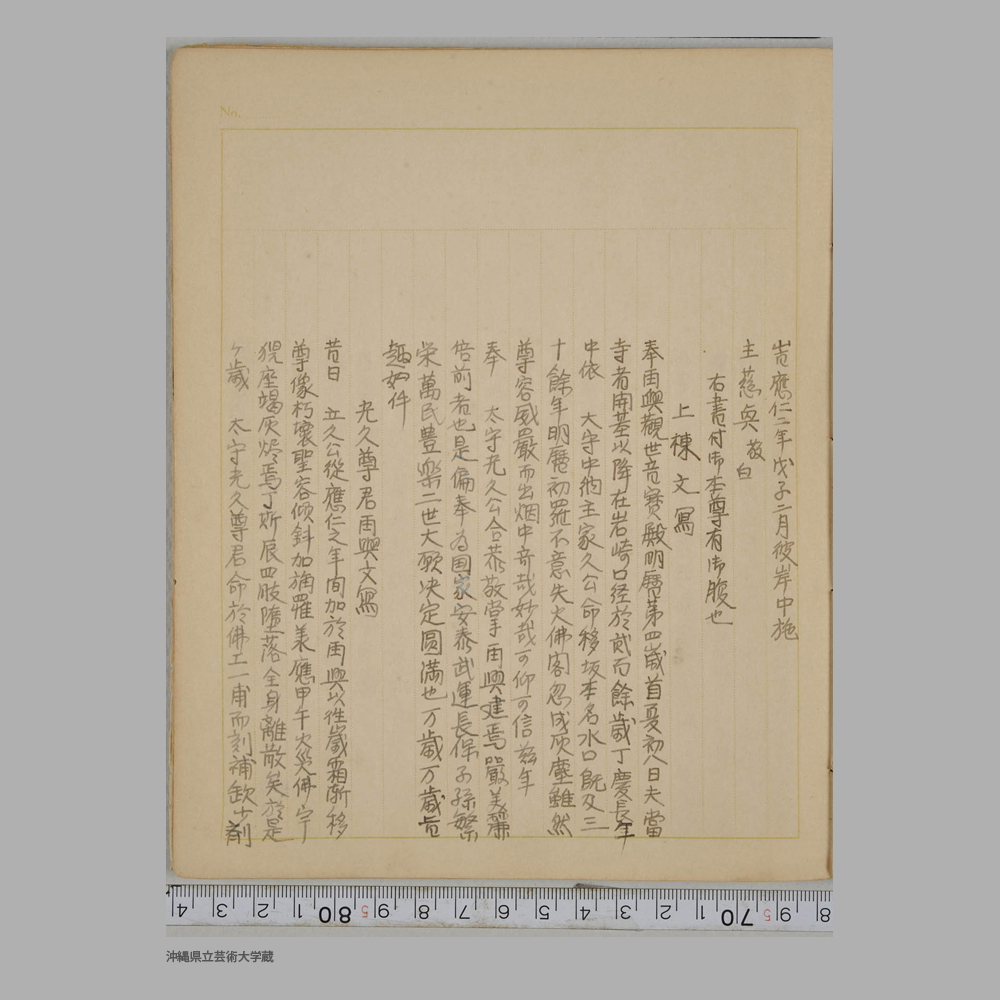 No.
旹應仁二年戊子二月彼岸中施
主慈奐敬白
右書付御本尊有御腹也
上棟文寫
奉再興觀世音寶殿明曆第四歲首夏初八日夫當
寺者開基以降在岩崎口経於貮百餘歲丁慶長年
中依 大守中納主家久公命移坂本名水口既及三
十餘年明曆初羅不意失火佛閣忽成灰塵雖然
尊容威嚴而出烟中奇哉妙哉可仰可信茲年
奉 太守光久公合恭敬掌再興建焉嚴美麗
倍前者也是偏奉為国家安泰武運長保子孫繁
栄萬民豊樂二世大願决定圓滿也万歲万歲旨
趣如件
光久尊君再興文寫
昔日 立久公從應仁之年間加於再興以徃歲霜漸移
尊像朽壞聖容傾斜加旃罹美應甲午火災佛宇
猊座竭灰烬焉丁斯辰四肢墮落全身離散矣於是
ケ歲 太守光久尊君命於佛工一甫而刻補欽少剤
4 3 2 1 80 5 9 8 7 6 5 4 3 2 1 70 5 9 8
沖縄県立芸術大学蔵